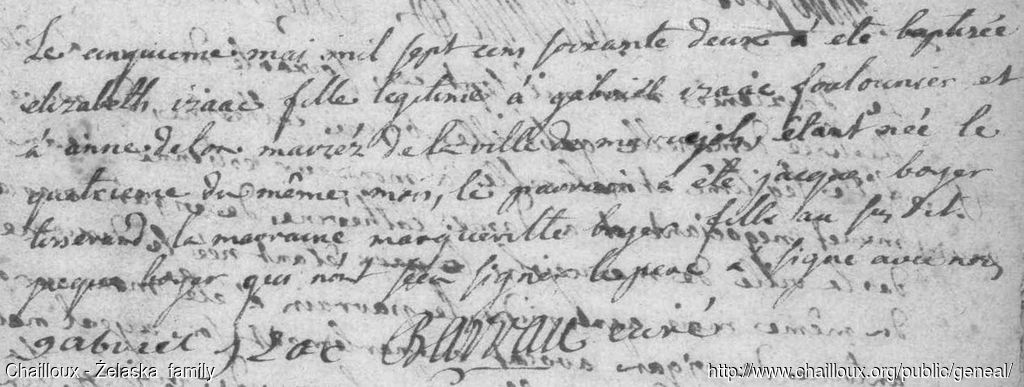 Le cinquieme mai mil sept cens soixante deux a été baptisée
elizabeth izaac fille legitime à gabriel izaac foulounier et
à anne delon mariéz de la ville de marvejols, étant née le
quatrieme du même mois, le parrain a été jacque boyer
tisserand, la marraine margueritte boyer fille au susdit
jacque boyer qui n'ont sçeu signer le pere a signé avec nous
gabriel Izac Barrau curé
Chailloux - Żelaska family
http://www.chailloux.org/public/geneal/